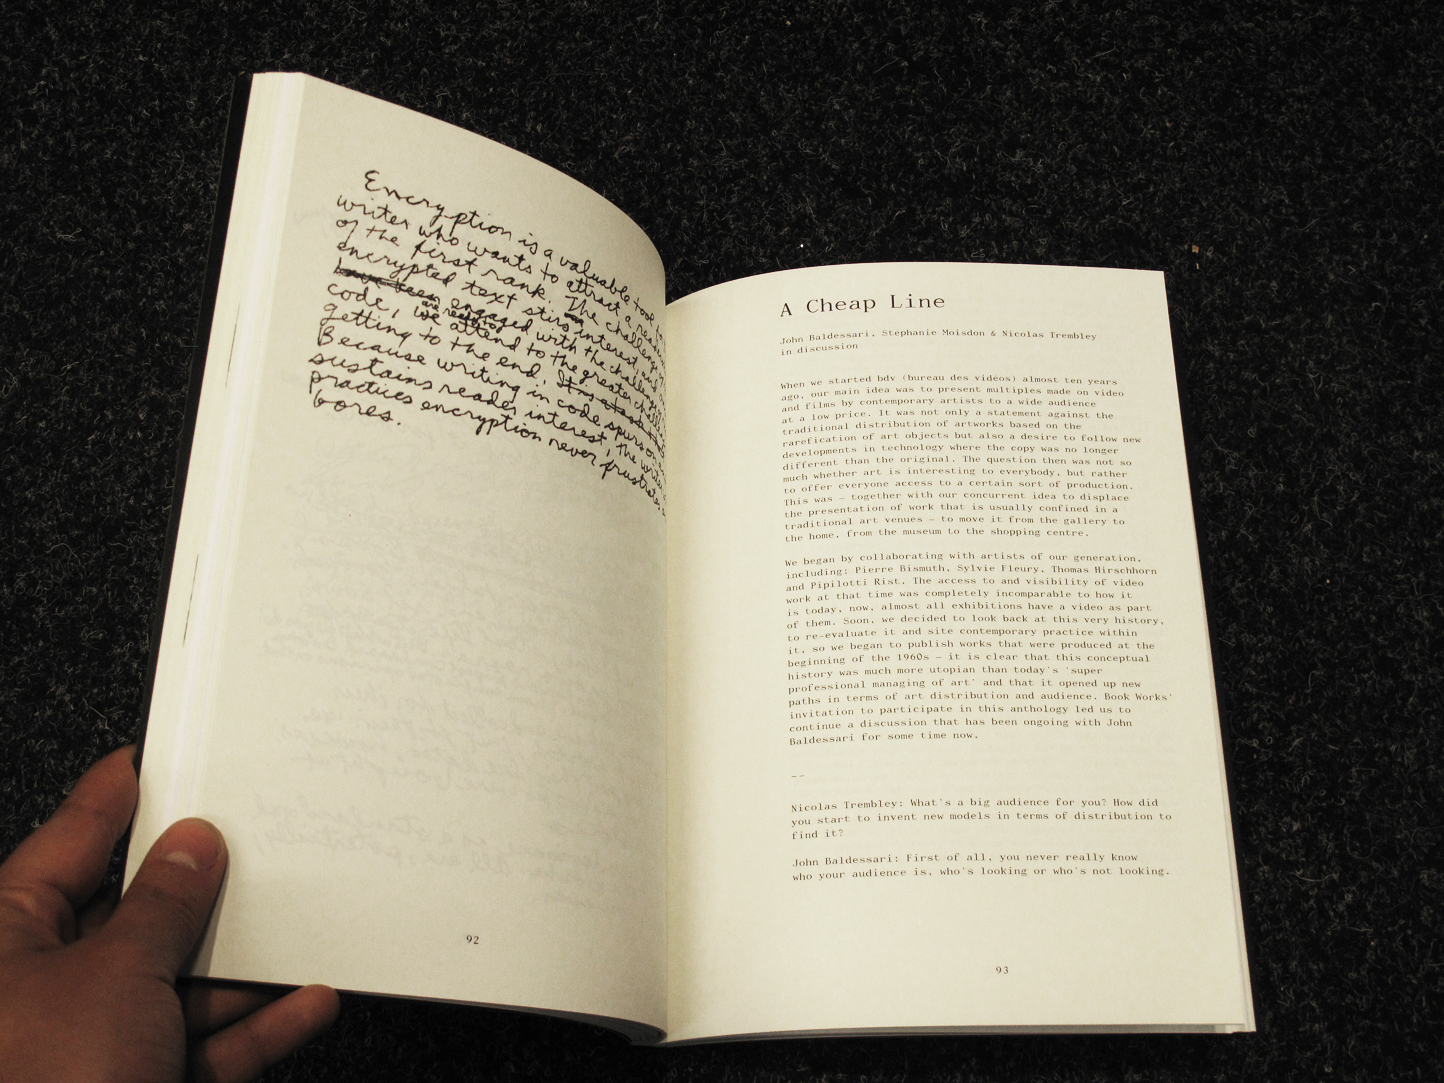 Encryption is a valuable tool
writer who wants to attract a
of the first rank. The challenge
encrypted text stirs interest, and
engaged with the challenge
are reading
code, we attend to the greater
getting to the end.
Because writing in code spurs on
sustains reader interest, the writer
practices encryption never frustrates
bores.
92
A Cheap Line
John Baldessari, Stephanie Moisdon & Nicolas Trembley
in discussion
When we started bdv (bureau des vidéos) almost ten years
ago, our main idea was to present multiples made on video
and films by contemporary artists to a wide audience
at a low price. It was not only a statement against the
traditional distribution of artworks based on the
rarefication of art objects but also a desire to follow new
developments in technology where the copy was no longer
different than the original. The question then was not so
much whether art is interesting to everybody, but rather
to offer everyone access to a certain sort of production.
This was – together with our concurrent idea to displace
the presentation of work that is usually confined in a
traditional art venues – to move it from the gallery to
the home, from the museum to the shopping centre.
We began by collaborating with artists of our generation,
including: Pierre Bismuth, Sylvie Fleury, Thomas Hirschhorn
and Pipilotti Rist. The access to and visibility of video
work at that time was completely incomparable to how it
is today, now, almost all exhibitions have a video as part
of them. Soon, we decided to look back at this very history,
to re-evaluate it and site contemporary practice within
it, so we began to publish works that were produced at the
beginning of the 1960s – it is clear that this conceptual
history was much more utopian than today's 'super
professional managing of art' and that it opened up new
paths in terms of art distribution and audience. Book Works'
invitation to participate in this anthology led us to
continue a discussion that has been ongoing with John
Baldessari for some time now.
--
Nicolas Trembley: What's a big audience for you? How did
you start to invent new models in terms of distribution to
find it?
John Baldessari: First of all, you never really know
who your audience is, who's looking or who's not looking.
93